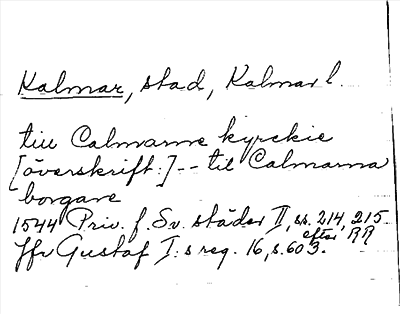 Kalmar, stad, Kalmar l.
till Calmarne kyrckie
[överskrift:] -- til Calmarna
borgare
1544 Priv. f. Sv. städer II, ss. 214, 215.
efter RR
Jfr Gustaf I:s reg. 16, s. 603.